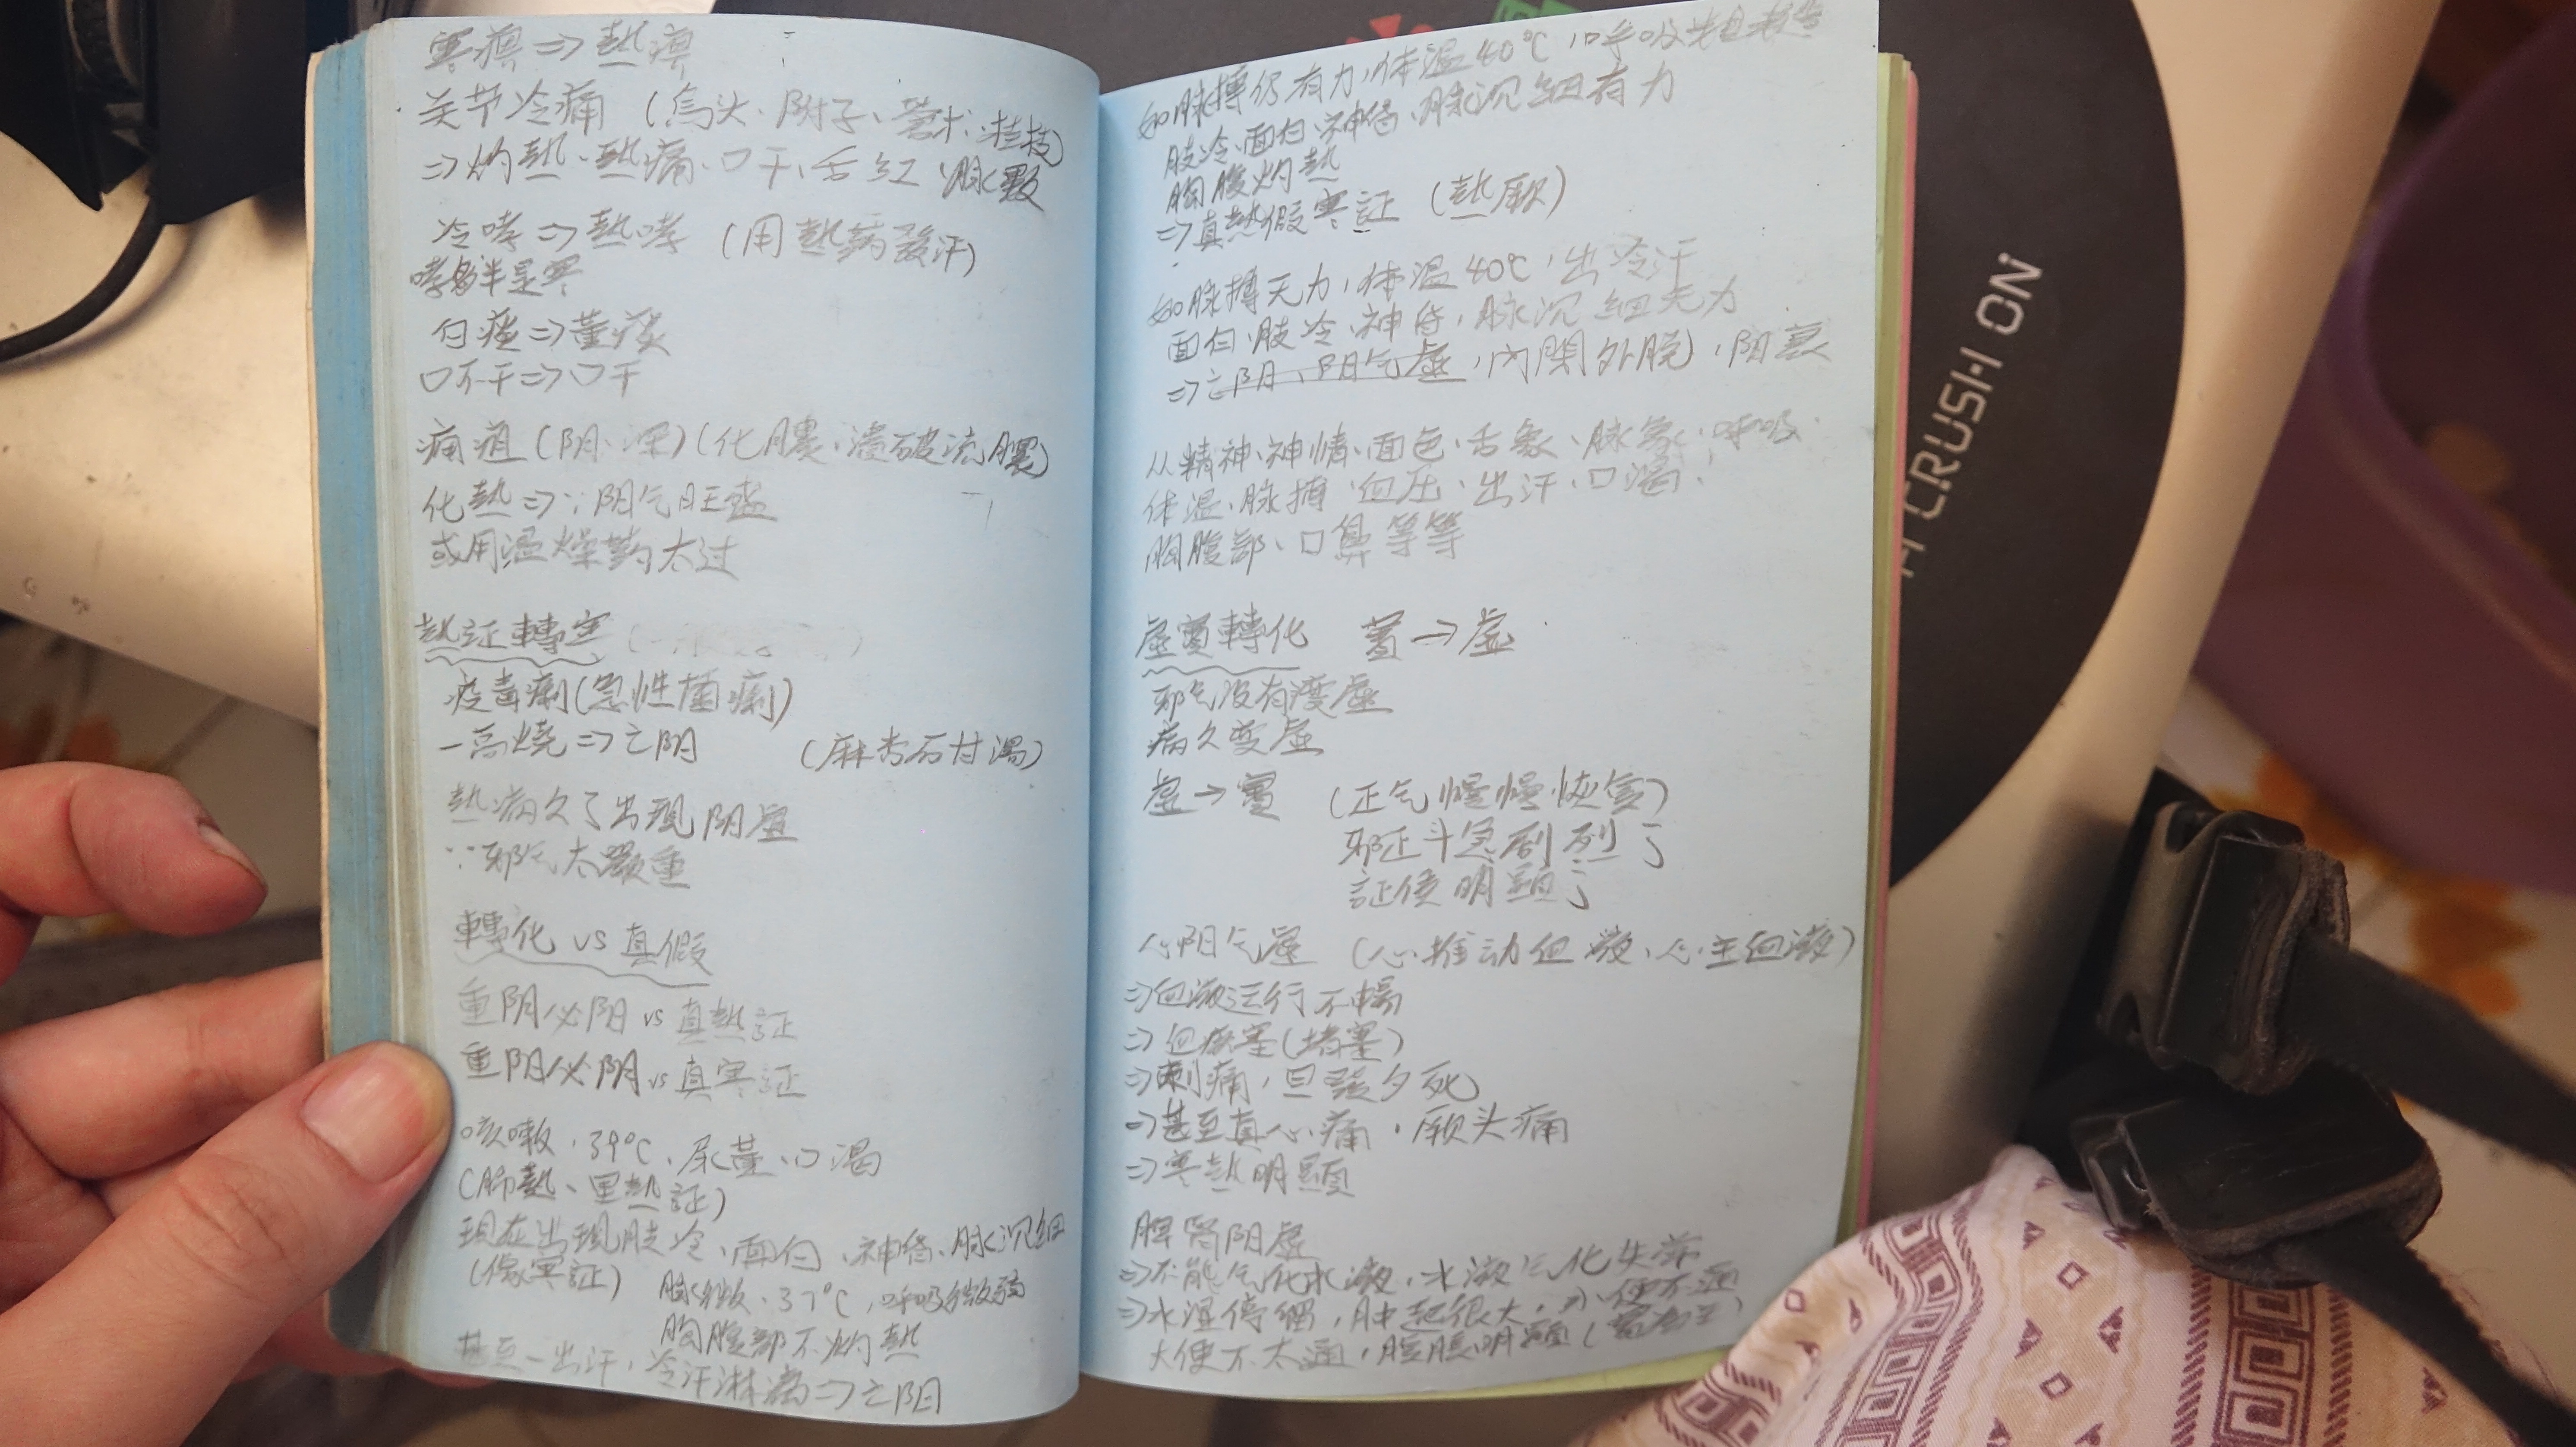 寒痹⇒熱痹
关节冷痛（烏头、附子、蒼术、桂枝）
⇒灼熱、熱痛、口干、舌红、脉數
冷哮⇒熱哮（用熱药發汗）
哮多半是寒
白痰⇒黃痰
口不干⇒口干
痈疽（阴、深）（化膿、潰破流膿）
化熱⇒∵阳气旺盛
或用温燥药太过
熱証轉寒
疫毒痢（急性菌痢）
一高燒⇒亡阳
（麻杏石甘湯）
熱病久了出現阳虛
∵邪气太嚴重
轉化 vs 真假
重阴必阳 vs 真熱証
重阳必阴 vs 真寒証
咳嗽、39°C、尿黃、口渴
（肺熱、里熱証）
現在出現肢冷、面白、神倦、脉沉細
（像寒証） 脉微、37°C，呼吸微弱
胸腹部不灼熱
甚至一出汗，冷汗淋漓⇒亡阳
如脉搏仍有力，体温40°C，呼吸
肢冷、面白、神倦、脉沉細有力
胸腹灼熱
⇒真熱假寒証（熱厥）
如脉搏无力，体温40°C，出冷汗
面白、肢冷、神倦，脉沉細无力
⇒亡阳、阳气虛，内閉外脱，阳衰
从精神、神情、面色、舌象、脉象、呼吸
体温、脉搏、血压、出汗、口渴、
胸腹部、口鼻等等
虛實轉化 實→虛
邪气没有變虛
病久變虛
虛→實（正气慢慢恢復）
邪正斗急劇烈了
証候明顯了
心阳气虛（心推动血液、心主血液）
⇒血液运行不暢
⇒血瘀塞（堵塞）
⇒刺痛，旦發夕死
⇒甚至真心痛，厥头痛
⇒寒熱明顯
脾腎阳虛
⇒不能气化水液，水液气化失常
⇒水湿停留，肿起很大，小便不通
大便不太通，腹脹明顯（實为主）
CRUSH ON